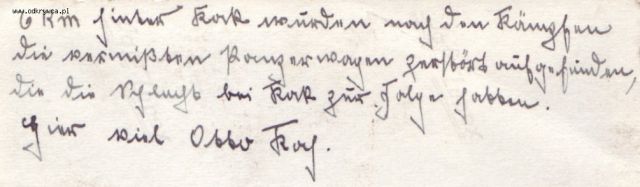 www.odkrywca.pl
6 km hinter Kak wurden nach den Kämpfen
die vermißten Panzerwagen zerstört aufgefunden,
die die Schlacht bei Kak zur Folge hatten.
Hier viel Otto Koch.